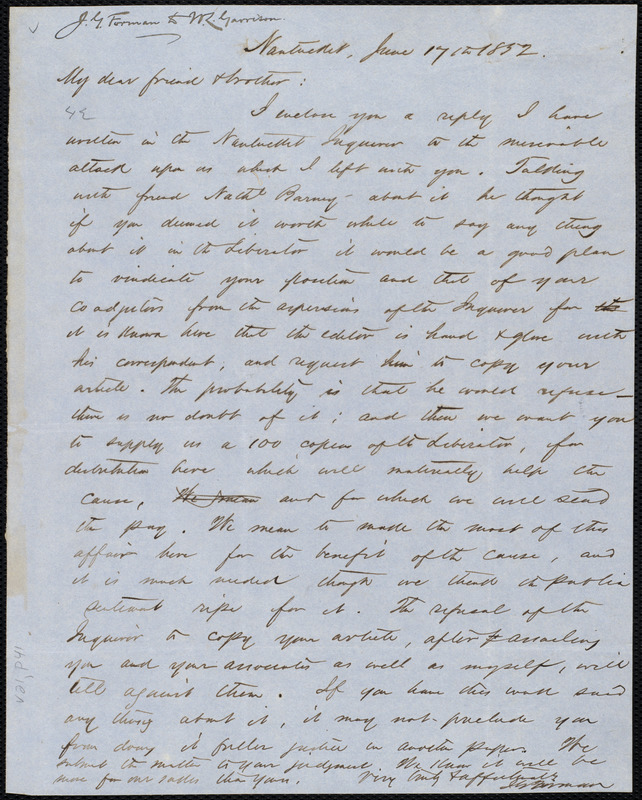 J. G. Forman to W. L. Garrison.
Nantucket, June 17th 1852.
My dear friend & brother:
I enclose you a reply I have
written in the Nantucket Inquirer to the miserable
attack upon us which I left with you. Talking
with friend Nathl Barney about it he thought
if you deemed it worth while to say any thing
about it in the Liberator it would be a good plan
to vindicate your position and that of your
coadjutors from the aspersions of the Inquirer for the
it is known here that the editor is hand & glove with
his correspondent, and request him to copy your
article. The probability is that he would refuse—
there is no doubt of it; and then we want you
to supply us a 100 copies of the Liberator, for
distribution here which will materially help the
cause, We mean and for which we will send
the pay. We mean to make the most of this
affair here for the benefit of the cause, and
it is much needed though we think the public
sentiment ripe for it. The refusal of the
Inquirer to copy your article, after assailing
you and your associates as well as myself, will
tell against them. If you have this week said
any thing about it, it may not preclude you
from doing it fuller justice in another paper. We
submit the matter to your judgment. We know it will be
more for our sakes than yours. Very truly & affectionately
J G Forman
vol. p 41.